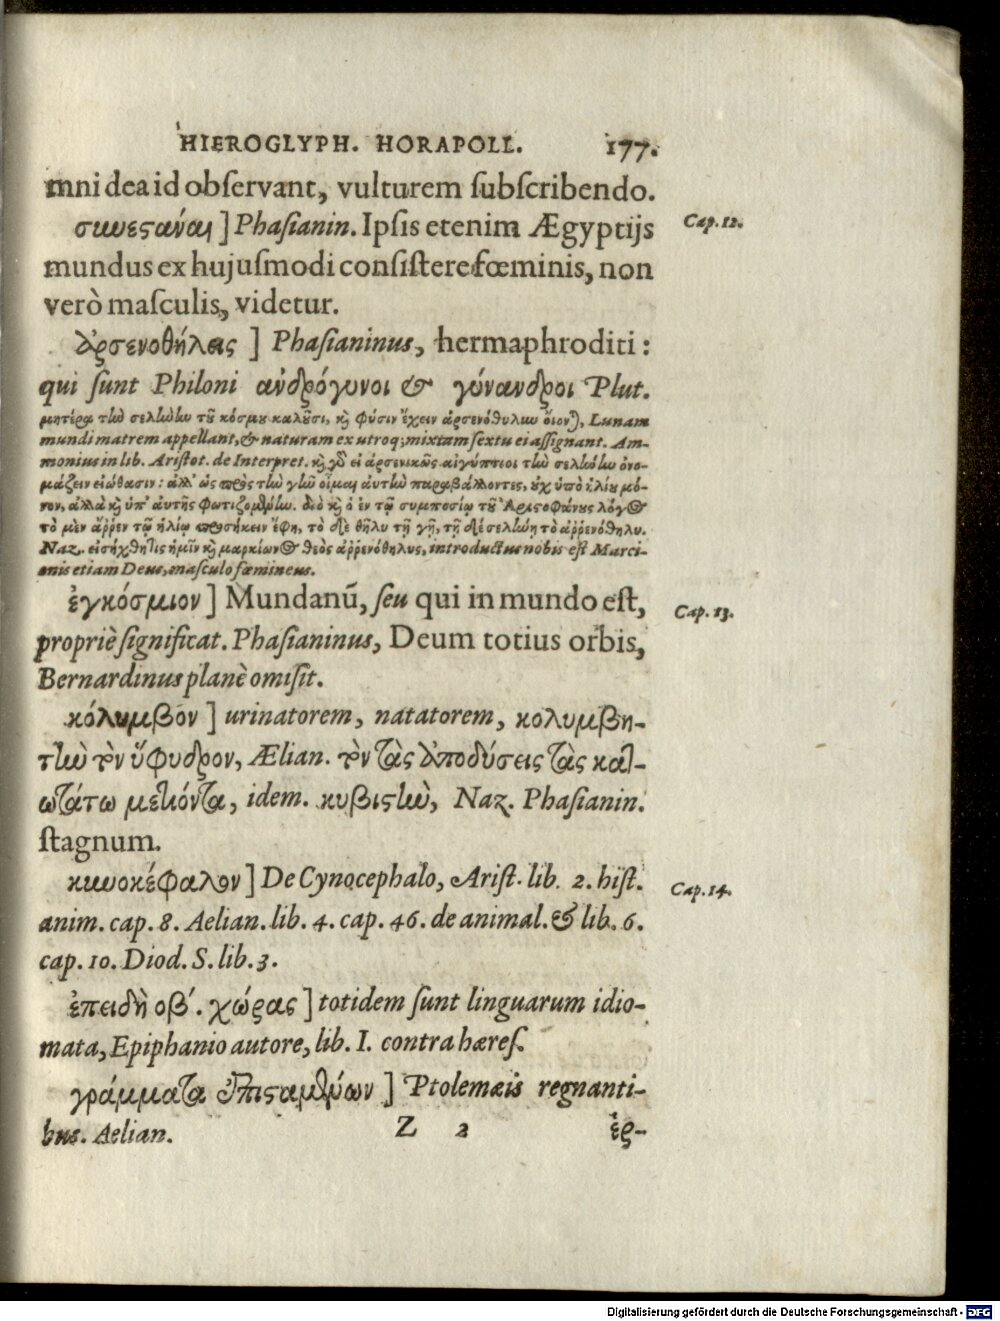 HIEROGLYPH. HORAPOLL. 177.
mni dea id observant, vulturem subscribendo.
συνεστάναι] Phasianin. Ipsis etenim Ægyptijs
Cap. 12.
mundus ex hujusmodi consistere fœminis, non
verò masculis, videtur.
ἀρσενοθήλεις ] Phasianinus, hermaphroditi :
qui sunt Philoni ἀνδρόγυνοι & γύνανδροι Plut.
μητέρα τὴν σελήνην τοῦ κόσμου καλοῦσι, καὶ φύσιν ἔχειν ἀρσενόθυλην οἴον), Lunam
mundi matrem appellant, & naturam ex utroq; mixtam sextu ei assignant. Am-
monius in lib. Aristot. de Interpret. καὶ γὸ εἰ ἀρσενικῶς αἰγύπτιοι τὴν σελήνην ὀνο-
μάζειν εἰώθασιν : ἀλλ' ὡς πρὸς τὴν γῆν οἶμαι αὐτὴν παραβάλλοντες, οὐχ ὑπὸ ἡλίου μό-
νον, ἀλλὰ καὶ ὑπ' αὐτῆς φωτιζομένην. διὸ καὶ ὁ ἐν τῷ συμποσίῳ τοῦ Ἀριστοφάνους λόγος
τὸ μὲν ἄρρεν τῷ ἡλίῳ προσήκειν ἔφη, τὸ δὲ θῆλυ τῇ γῇ, τῇ δὲ σελήνῃ τὸ ἀρρενόθηλυ.
Naz. εἰσήχθη τις ἡμῖν καὶ μαρκίωνος θεὸς ἀρρενόθηλυς, introductus nobis est Marci-
onis etiam Deus, masculo fœmineus.
ἐγκόσμιον] Mundanũ, seu qui in mundo est,
Cap. 13.
propriè significat. Phasianinus, Deum totius orbis,
Bernardinus planè omisit.
κόλυμβον ] urinatorem, natatorem, κολυμβη-
τὴν τὸν ὕφυδρον, Ælian. τὸν τὰς ἀποδύσεις τὰς κατ-
ωτάτω μετιόντα, idem. κυβιστὴν, Naz. Phasianin.
stagnum.
κυνοκέφαλον ] De Cynocephalo, Arist. lib. 2. hist.
Cap. 14.
anim. cap. 8. Aelian. lib. 4. cap. 46. de animal. & lib. 6.
cap. 10. Diod. S. lib. 3.
ἐπειδὴ οβ´. χώρας ] totidem sunt linguarum idio-
mata, Epiphanio autore, lib. I. contra hæres.
γράμματα ἐπισταμένων ] Ptolemæis regnanti-
bus. Aelian.
Z 2
ἐρ-
Digitalisierung gefördert durch die Deutsche Forschungsgemeinschaft - DFG